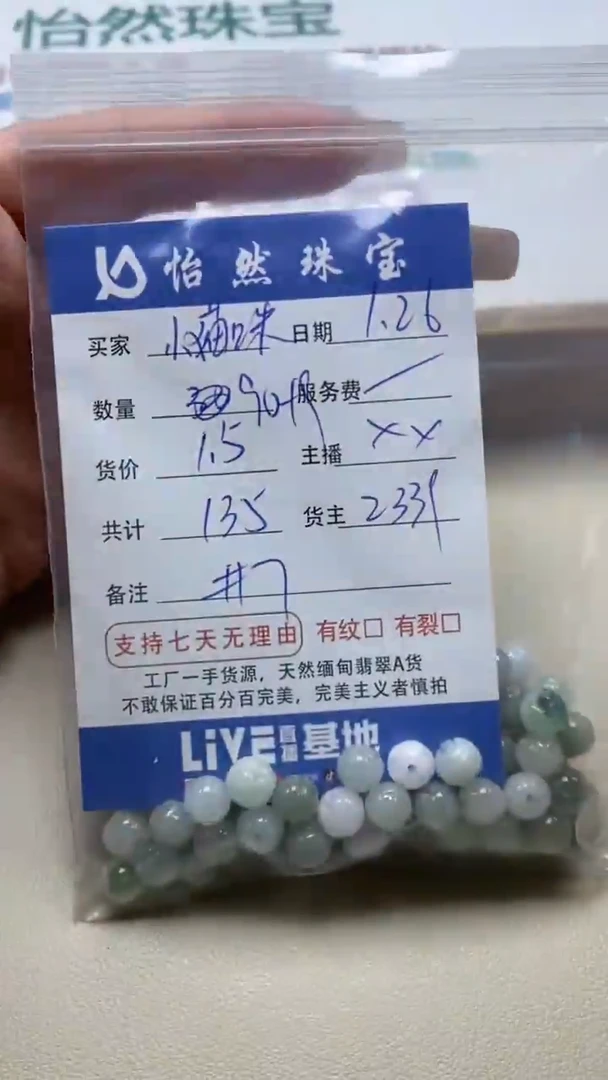 怡然珠宝
怡然珠宝
买家 小猫咪 日期 1.26
数量 90件 服务费 /
货价 1.5 主播 ××
共计 135 货主 2339
备注 #7
支持七天无理由 有纹□ 有裂□
工厂一手货源，天然缅甸翡翠A货
不敢保证百分百完美，完美主义者慎拍
LiVE直播基地